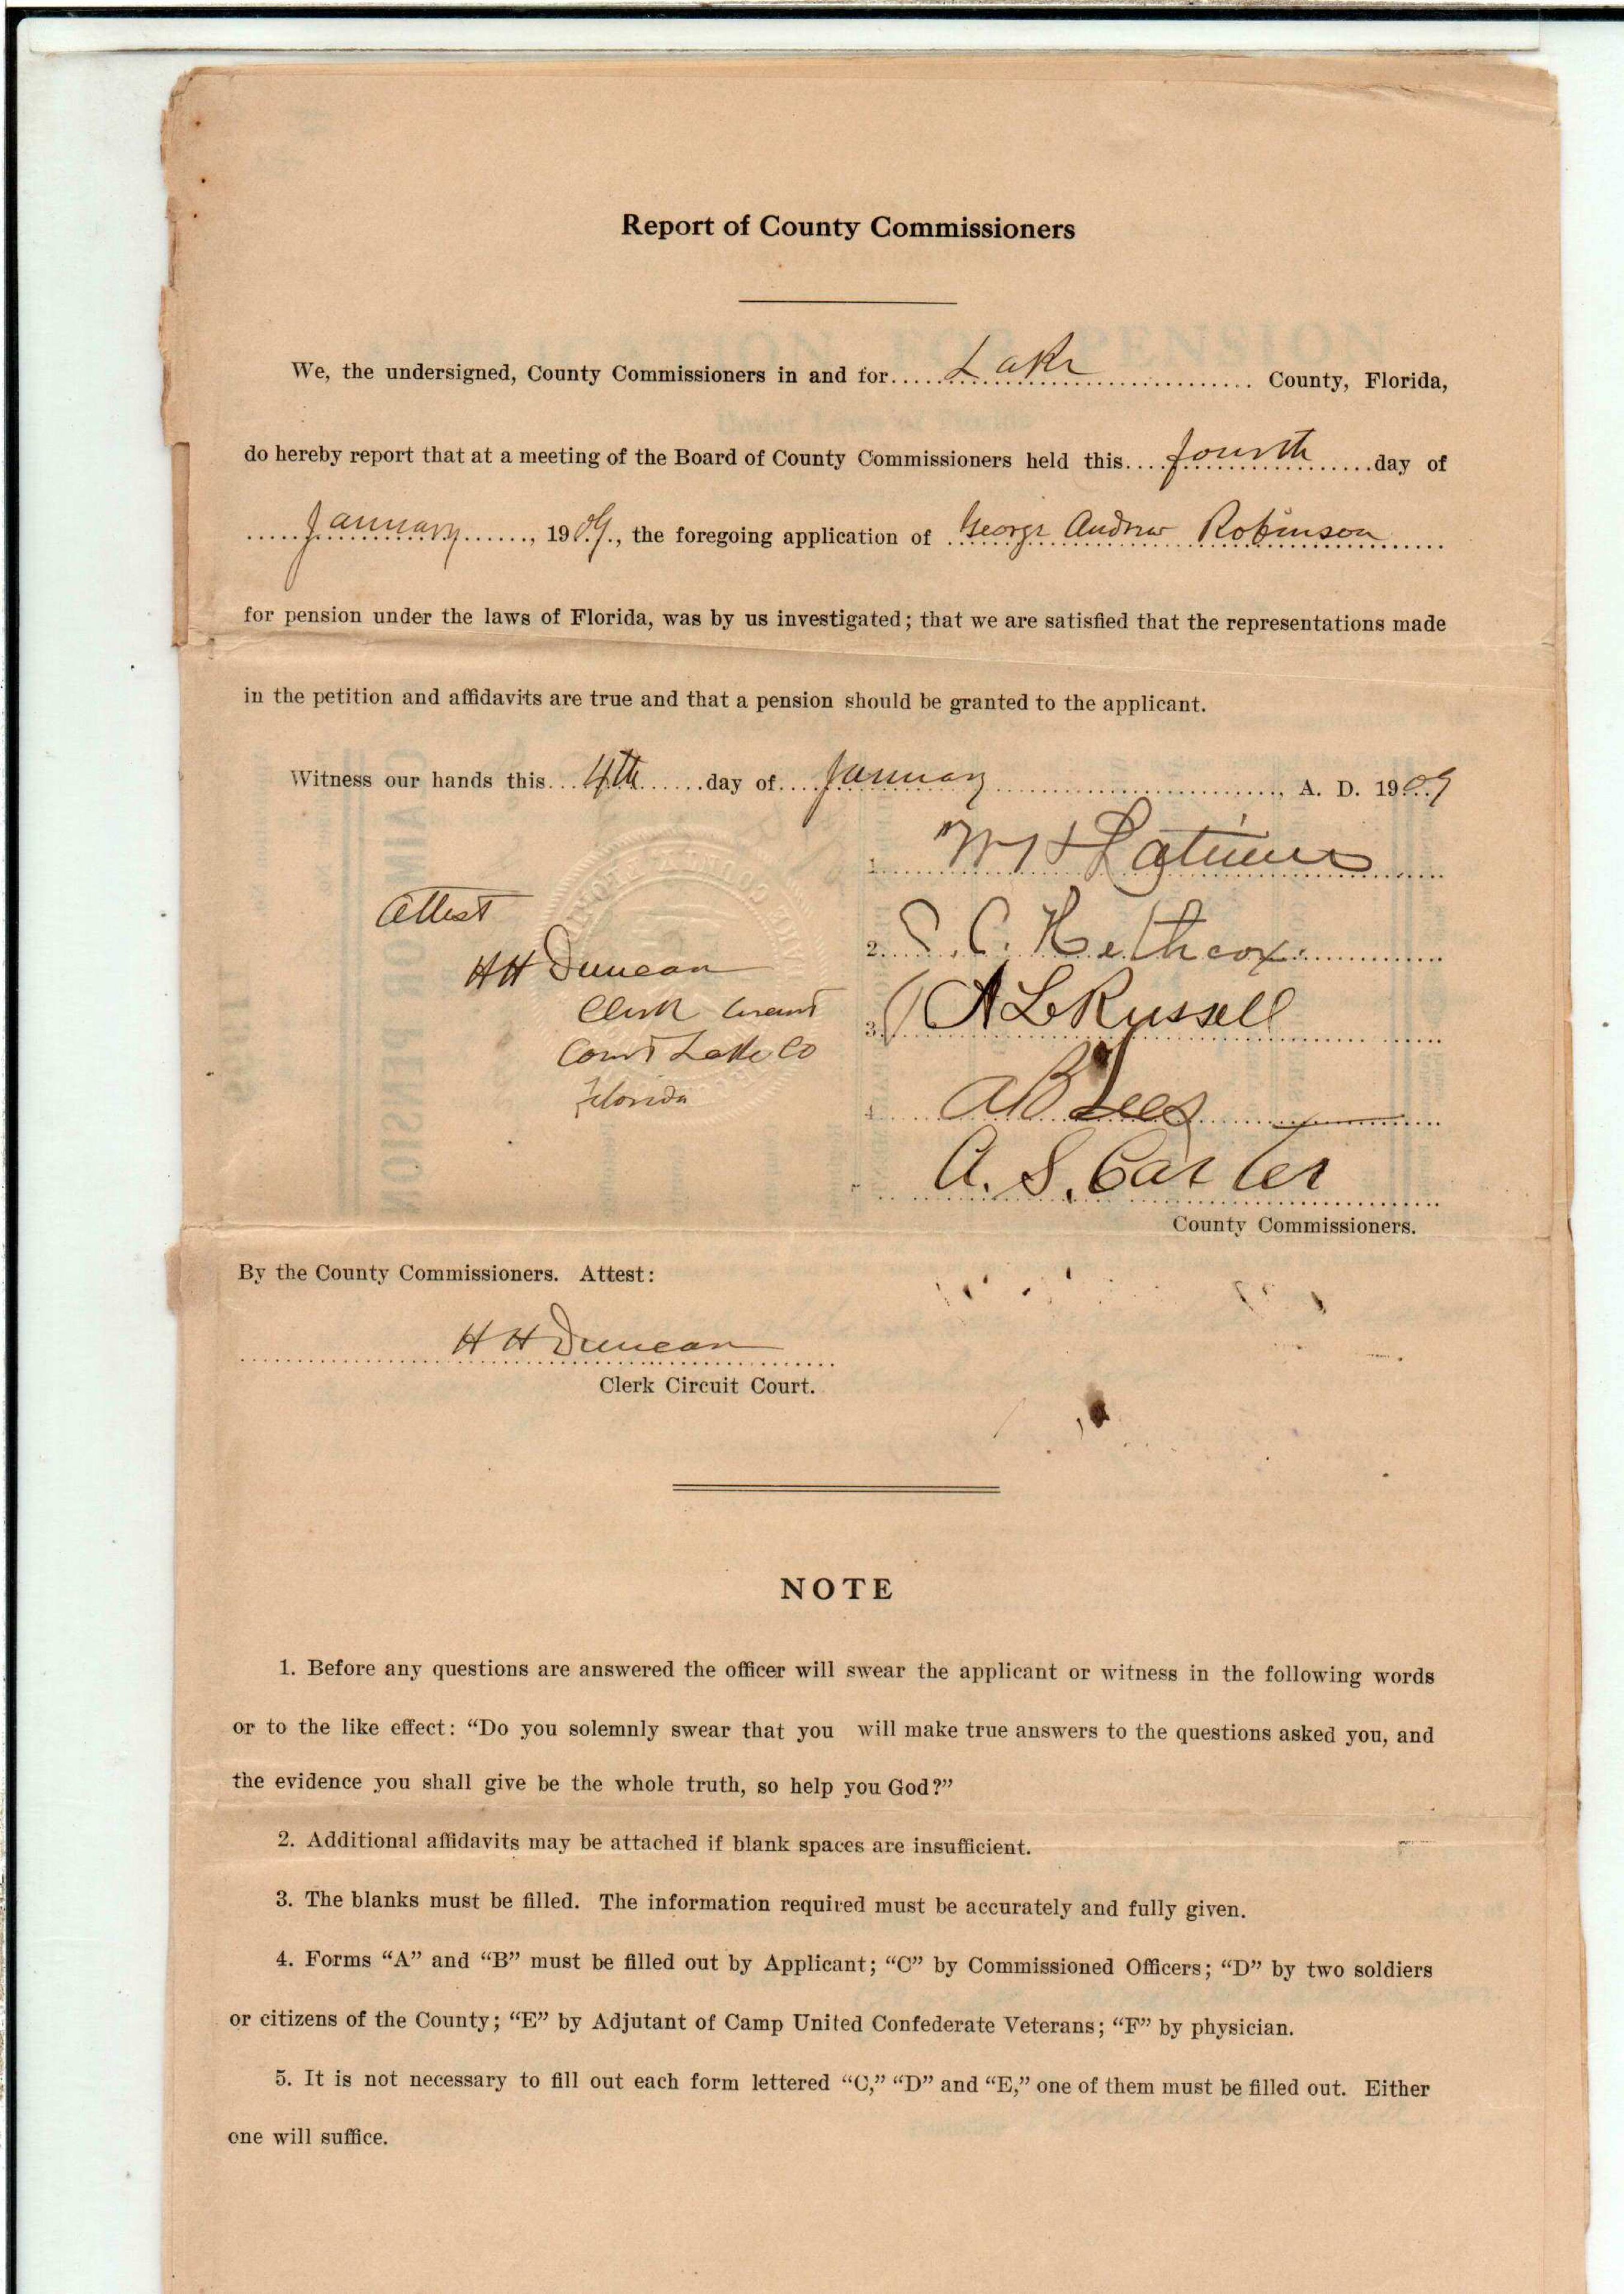 Report of County Commissioners
We, the undersigned, County Commissioners in and for..... Lake .................... County, Florida,
do hereby report that at a meeting of the Board of County Commissioners held this.... fourth ......day of
..... January ......, 1909., the foregoing application of George Andrew Robinson
for pension under the laws of Florida, was by us investigated; that we are satisfied that the representations made
in the petition and affidavits are true and that a pension should be granted to the applicant.
Witness our hands this... 4th ......day of.... January ......................, A. D. 1909
1. Latimer
Attest
2. S. C. Hethcox
H H Duncan
Clerk Circuit
3. A L Russell
Court Lake Co
Florida
4. A B Lee
A. S. Carter
County Commissioners.
By the County Commissioners. Attest:
H H Duncan
Clerk Circuit Court.
NOTE
1. Before any questions are answered the officer will swear the applicant or witness in the following words
or to the like effect: “Do you solemnly swear that you will make true answers to the questions asked you, and
the evidence you shall give be the whole truth, so help you God?”
2. Additional affidavits may be attached if blank spaces are insufficient.
3. The blanks must be filled. The information required must be accurately and fully given.
4. Forms “A” and “B” must be filled out by Applicant; “C” by Commissioned Officers; “D” by two soldiers
or citizens of the County; “E” by Adjutant of Camp United Confederate Veterans; “F” by physician.
5. It is not necessary to fill out each form lettered “C,” “D” and “E,” one of them must be filled out. Either
one will suffice.